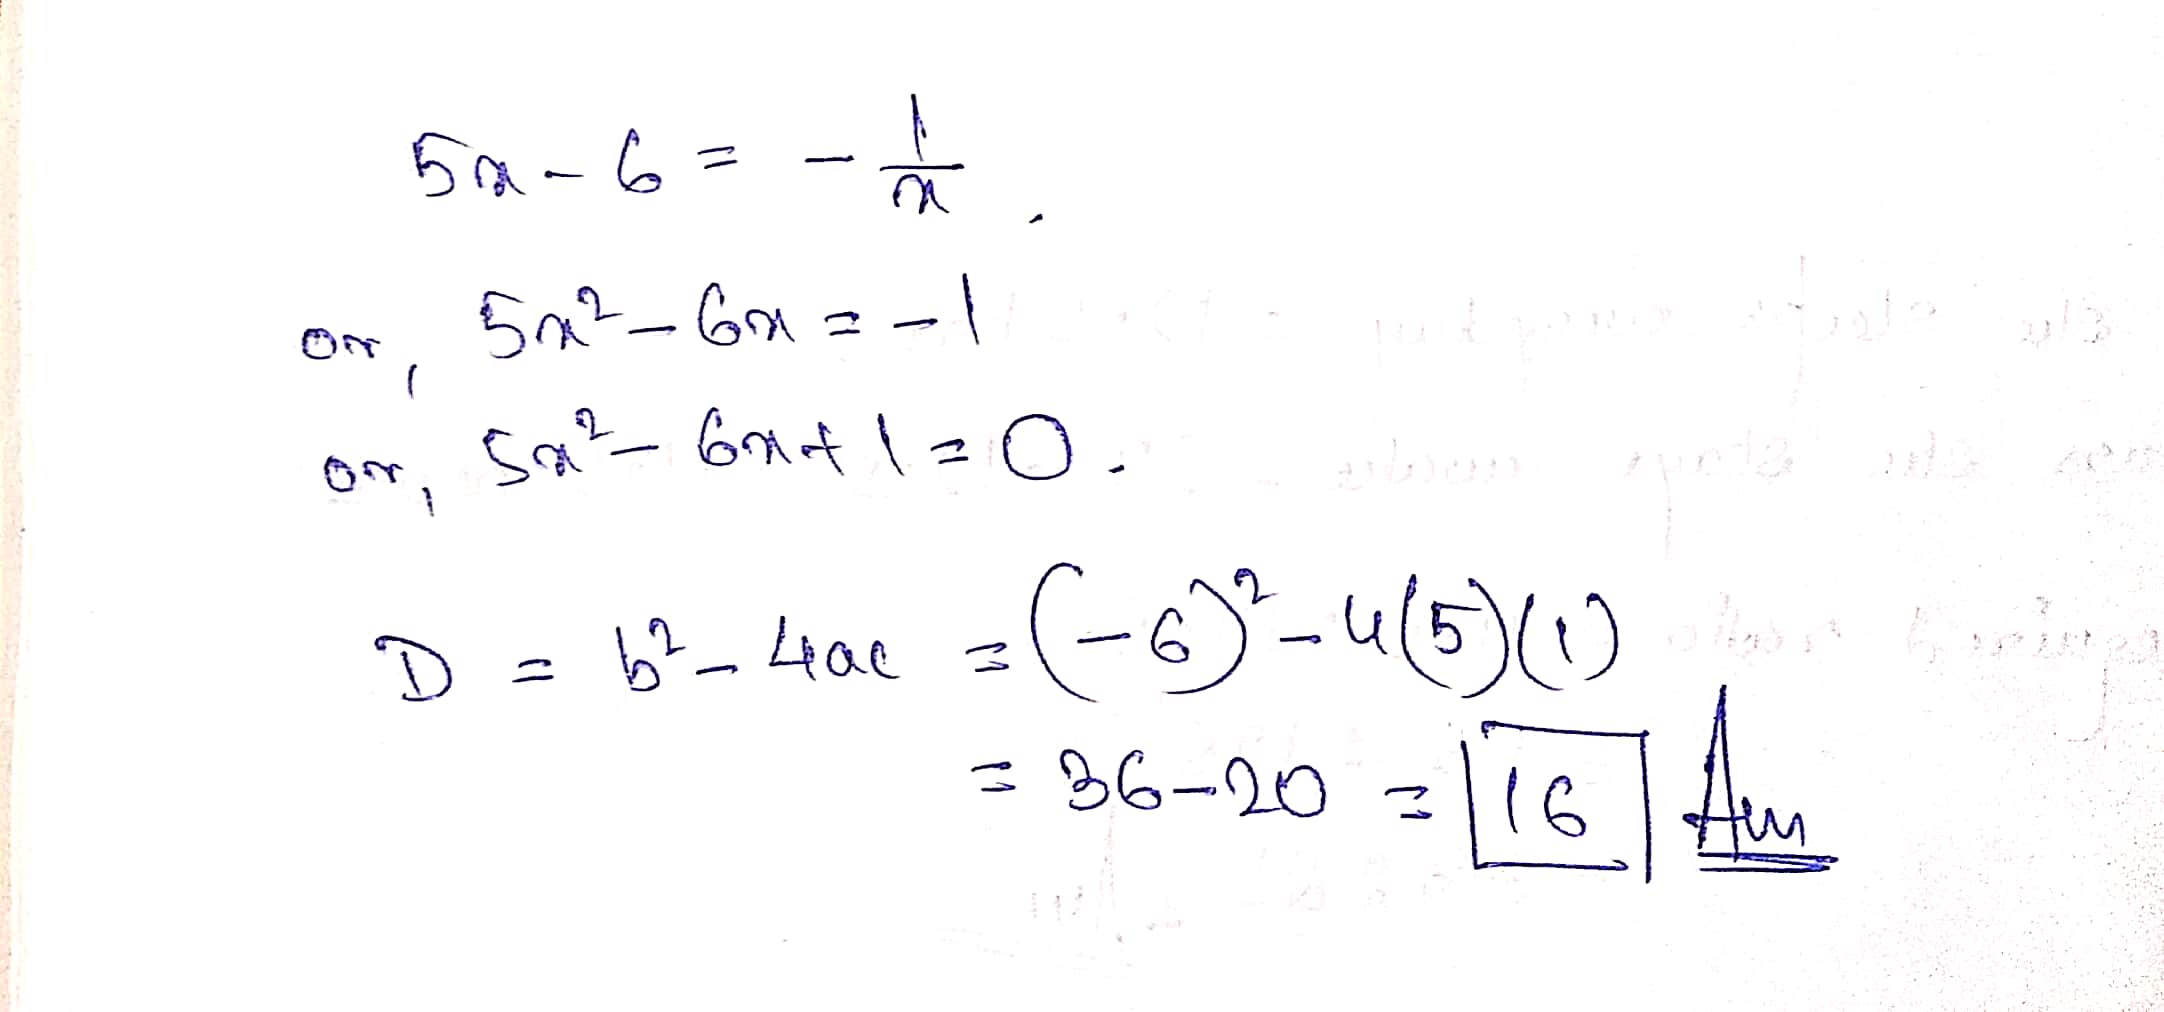 5x - 6 = - 1/x .
or, 5x² - 6x = -1
or, 5x² - 6x + 1 = 0 .
D = b² - 4ac = (-6)² - 4(5)(1)
= 36 - 20 = 16 Ans